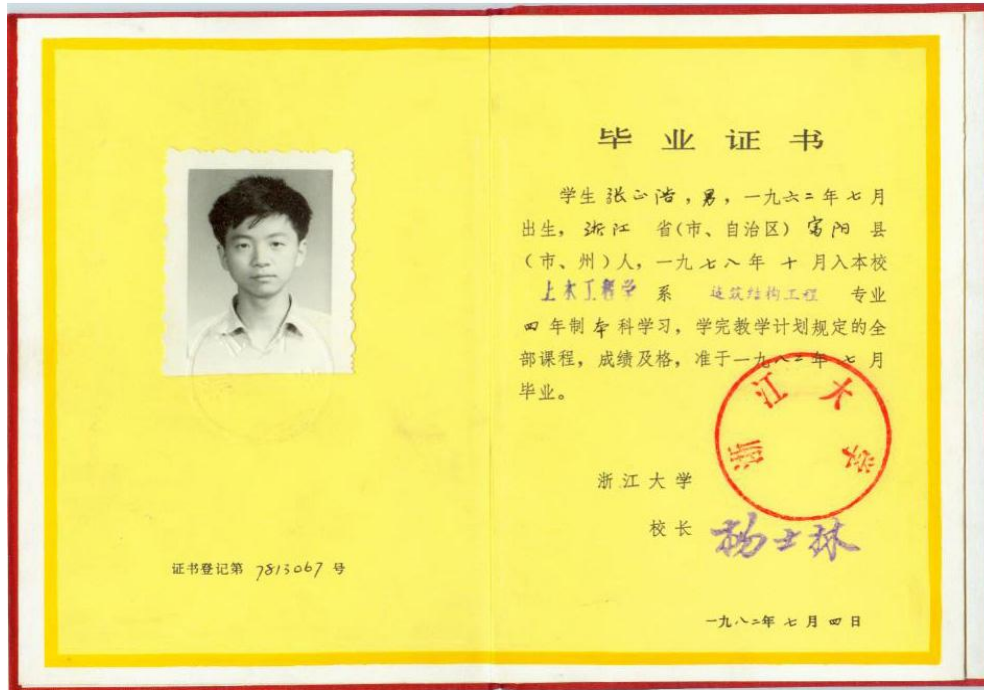 毕业证书
学生 张正浩，男，一九六二年七月
出生，浙江 省(市、自治区) 富阳 县
(市、州)人，一九七八年 十 月入本校
土木工程学 系 建筑结构工程 专业
四年制本科学习，学完教学计划规定的全
部课程，成绩及格，准于一九八二年 七 月
毕业。
浙江大学
浙江大学
校长 杨士林
证书登记第 7813067 号
一九八二年 七 月 四 日